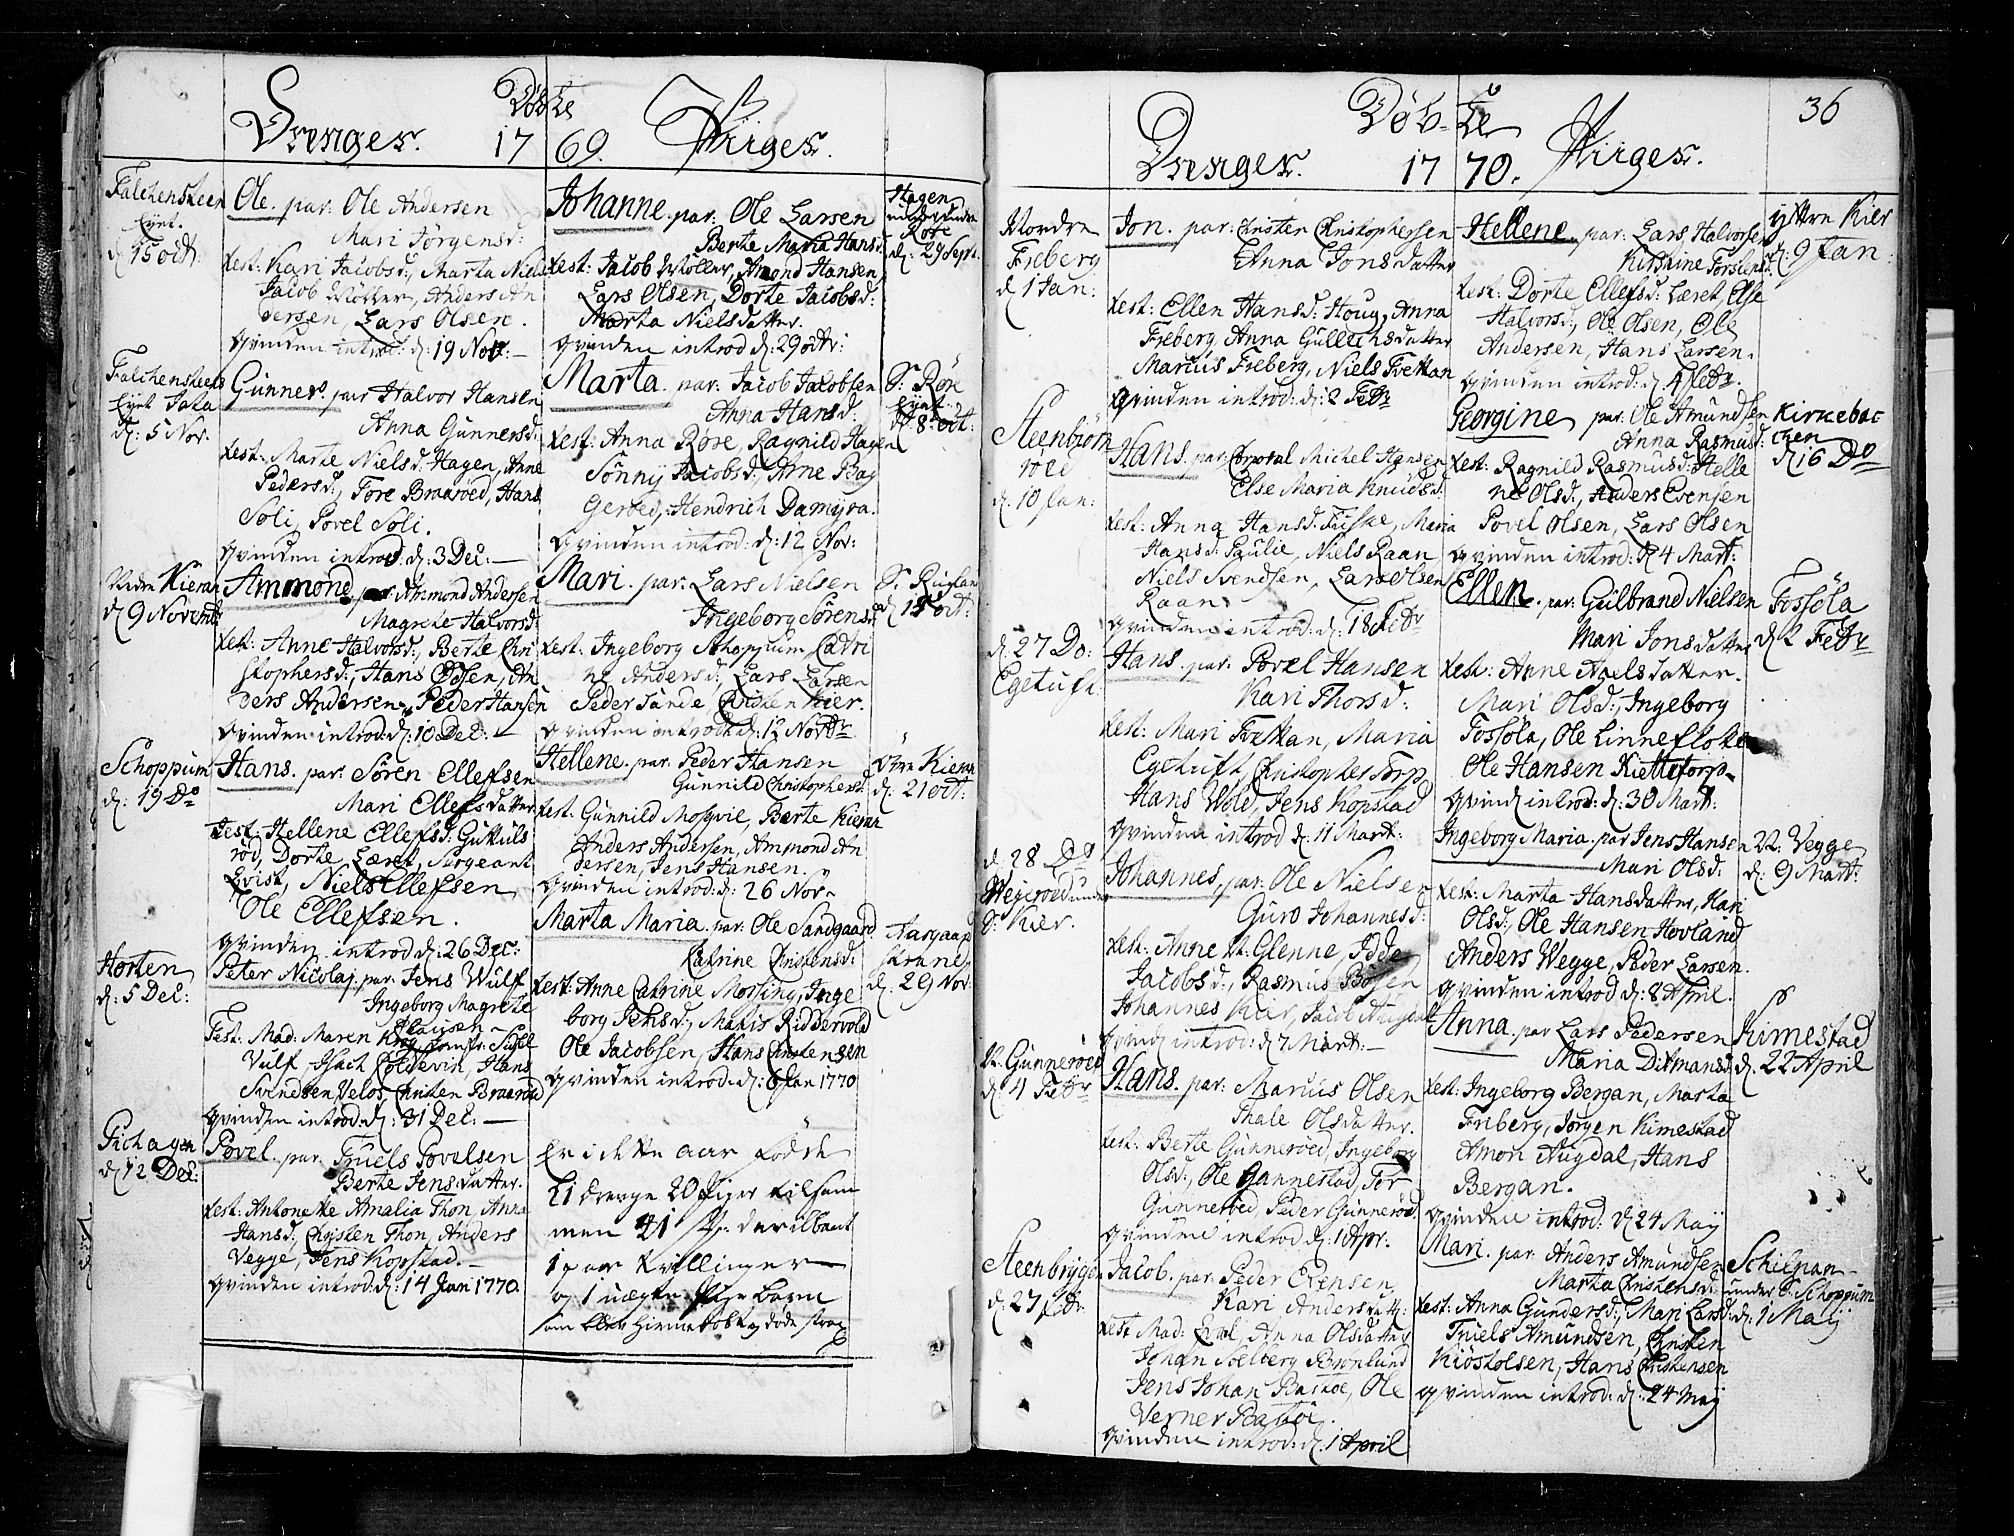 Døbte
Drenger. 17 69. Piiger.
Falchensteen
Eyet.
d. 15 octr.
Ole. par: Ole Andersen
Mari Jörgensd:
test: Kari Jacobsd:, Marta Niels
Jacob Möller, Anders An
dersen, Lars Olsen.
qvinden introd: d: 19 Nov:
Falchensteens
Eyet Jata
d: 5 Nov.
Gunner. par Halvor Hansen
Anna Gunnersd:
test: Marte Nielsd: Hagen, Anne
Pedersd:, Tore Braarøed, Hans
Soli, Povel Soli.
qvinden introd: d: 3 Dec:
Nedre Kieran
d. 9 Novembr
Ammond par Ammond Andersen
Magrete Halvorsd:
test: Anne Halvorsd:, Berte Chri
stophersd:, Hans Olsen, An
ders Andersen, Peder Hansen
qvinden introd: d: 10 Dec:
Schoppum
d: 19 Do
Hans. par: Sören Ellefsen
Mari Ellefsdatter
test: Hellene Ellefsd: Guttuls
röd, Dorte Læret, Sergeant
Qvist, Niels Ellefsen
Ole Ellefsen.
qvinden introd d: 26 Dec:
Horten
d: 5 Dec:
Peter Nicolaj par: Jens Wulf
Ingeborg Magrete
Clausen
Test: Mad: Maren Krog, Jomfr: Sissel
Vulf, Isach Coldevin, Hans
Svendsen Velos, Christen Braarød
qvinden introd: d: 31 Dec:
Fichagen
d. 12 Dec:
Povel. par Truels Povelsen
Berte Jensdatter.
test: Antonette Amalia Thon, Anna
Hansd:, Christen Thon, Anders
Vegge, Jens Kopstad.
qvinden introd: d: 14 Jan 1770.
Johanne. par: Ole Larsen
Berte Maria Hansd:
test: Jacob Möller, Amond Hansen
Lars Olsen, Dorte Jacobsd:
Marta Nielsdatter.
qvinden introd d: 29 octr:
Hagen
under
Røre
d. 29 Sept:
Marta. par: Jacob Jacobsen
Anna Hansd:
test: Anna Røre, Ragnild Hagen
Sönnj Jacobsd:, Arne Bag
gerøed, Hendrich Damyra.
qvinden introd: d: 12 Nov:
S: Röre
Eyet
d. 8 oct:
Mari. par: Lars Nielsen
Ingeborg Sörensd
test: Ingeborg Schoppum, Catri
ne Andersd:, Lars Larsen
Peder Sande, Christen Kier.
qvinden introd: d: 12 Novbr
S: Ruglan
d. 15 oct:
Hellene. par: Peder Hansen
Gunnild Christophersd:
test: Gunnild Mosvie, Berte Kieran
Anders Andersen, Ammond An
dersen, Jens Hansen.
qvinden introd: d: 26 Nov
Øvre Kieran
d: 21 oct:
Marta Maria. par: Ole Sandgaard
Catrine Christensd:
test: Anne Catrine Morsing, Inge
borg Jensd:, Matis Riddervold
Ole Jacobsen, Hans Christensen
qvinden introd: d: 6 Jan 1770
Aasgaard
strand.
d. 29 Nov:
Er i dette aar fødde
21 drenge 20 Piger tilsam
men 41 St. deriblant
1 par Tvillinger
og 1 uægte Pige barn
som blev hiemmedöbt og döde strax
36
Døbte
Drenger. 17 70. Piiger.
Nordre
Freberg
d. 1 Jan:
Jon. par: Christen Christophersen
Anna Jonsdatter
test: Ellen Hansd: Houg, Anna
Freberg, Anna Gullichsdatter
Marcus Freberg, Niels Trettan
qvinden introd: d: 2 Febr
Steenbjørn
röed
d. 10 Jan:
Hans. par: Corporal Michel Hansen
Else Maria Knudsd:
test: Anna Hansd: Friske, Maria
Hansd: Paulie, Niels Raan
Niels Svendsen, Lars Olsen
Raan
qvinden introd: d: 18 Febr
d. 27 Do:
Egetuft
Hans. par: Povel Hansen
Kari Thorsd:
test: Mari Trettan, Maria
Egetuft, Christopher Torp,
Hans Wold, Jens Kopstad
qvinden introd d: 11 Mart:
d. 28 Do
Wegerøed under
S: Kier.
Johannes. par: Ole Nielsen
Guro Johannesd:
test: Anne N: Glenne, Idde
Jacobsd:, Rasmus Bossen
Johannes Kier, Jacob Augdal
qvind: introd: d. 7 Mart:
N: Gunnerød
d. 4 Febr
Hans. par: Marius Olsen
Thale Olsdatter.
test: Berte Gunnerøed, Ingeborg
Olsd:, Ole Gannestad, Tor
Gunnerøed, Peder Gunnerød.
qvinden introd d: 1 Apr.
Steenbryggen
d. 27 Febr
Jacob. par: Peder Evensen
Kari Andersdatt:
test Mad: Qvel, Anna Olsdatter
Johan Solberg Brønlund
Jens Johan Bastöe, Ole
Verner Bastöe.
qvinden introd: d. 1 April
Hellene. par: Lars Halvorsen
Kirstine Torstensd:
test: Dorte Ellefsd: Læret, Else
Halvorsd:, Ole Olsen, Ole
Andersen, Hans Larsen.
qvinden introd: d. 4 Febr.
ytre Kier
d. 9 Jan:
Georgine par: Ole Amundsen
Anna Rasmusd:
test: Ragnild Rasmusd: Helle
ne Olsd:, Anders Evensen
Povel Olsen, Lars Olsen
qvinden introd: d. 4 Mart:
Kirkebac
chen
d. 16 Do
Ellen. par: Gulbrand Nielsen
Mari Jonsdatter
test: Anne Axelsdatter.
Mari Olsd:, Ingeborg
Fossöla, Ole Linnefloten
Ole Hansen Kiettetorp.
qvind introd: d: 30 Mart:
Fossöla
d. 2 Febr
Ingeborg Maria. par Jens Hansen
Mari Olsd:
test: Marta Hansdatter, Kari
Olsd:, Ole Hansen Hovland
Anders Wegge, Peder Larsen.
qvinden introd. d: 8 April.
N: Vegge
d. 9 Mart:
Anna. par Lars Pedersen
Maria Ditmansd:
test: Ingeborg Bergan, Marta
Friberg, Jörgen Kimestad
Amon Augdal, Hans
Bergan.
qvinden introd: d. 24 May
Kimestad
d. 22 April
Mari. par Anders Amundsen
Marta Christensd:
test: Anna Gundersd:, Mari Larsd:
Truels Amundsen, Christen
Kiöstolsen, Hans Christensen
qvinden introd: d. 24 Maij
Schilpan
under S: Schoppum
d. 1 Maij